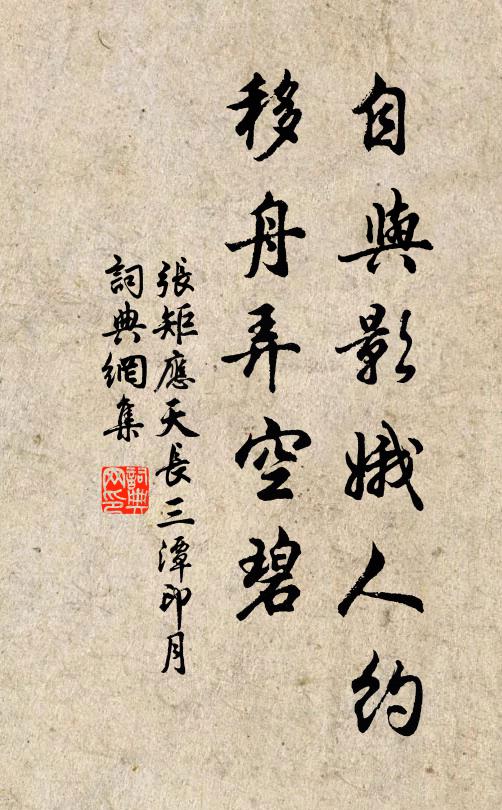 自與影娥人約
移舟弄空碧
張矩應天長三潭印月
詞典網集
詞典
网印